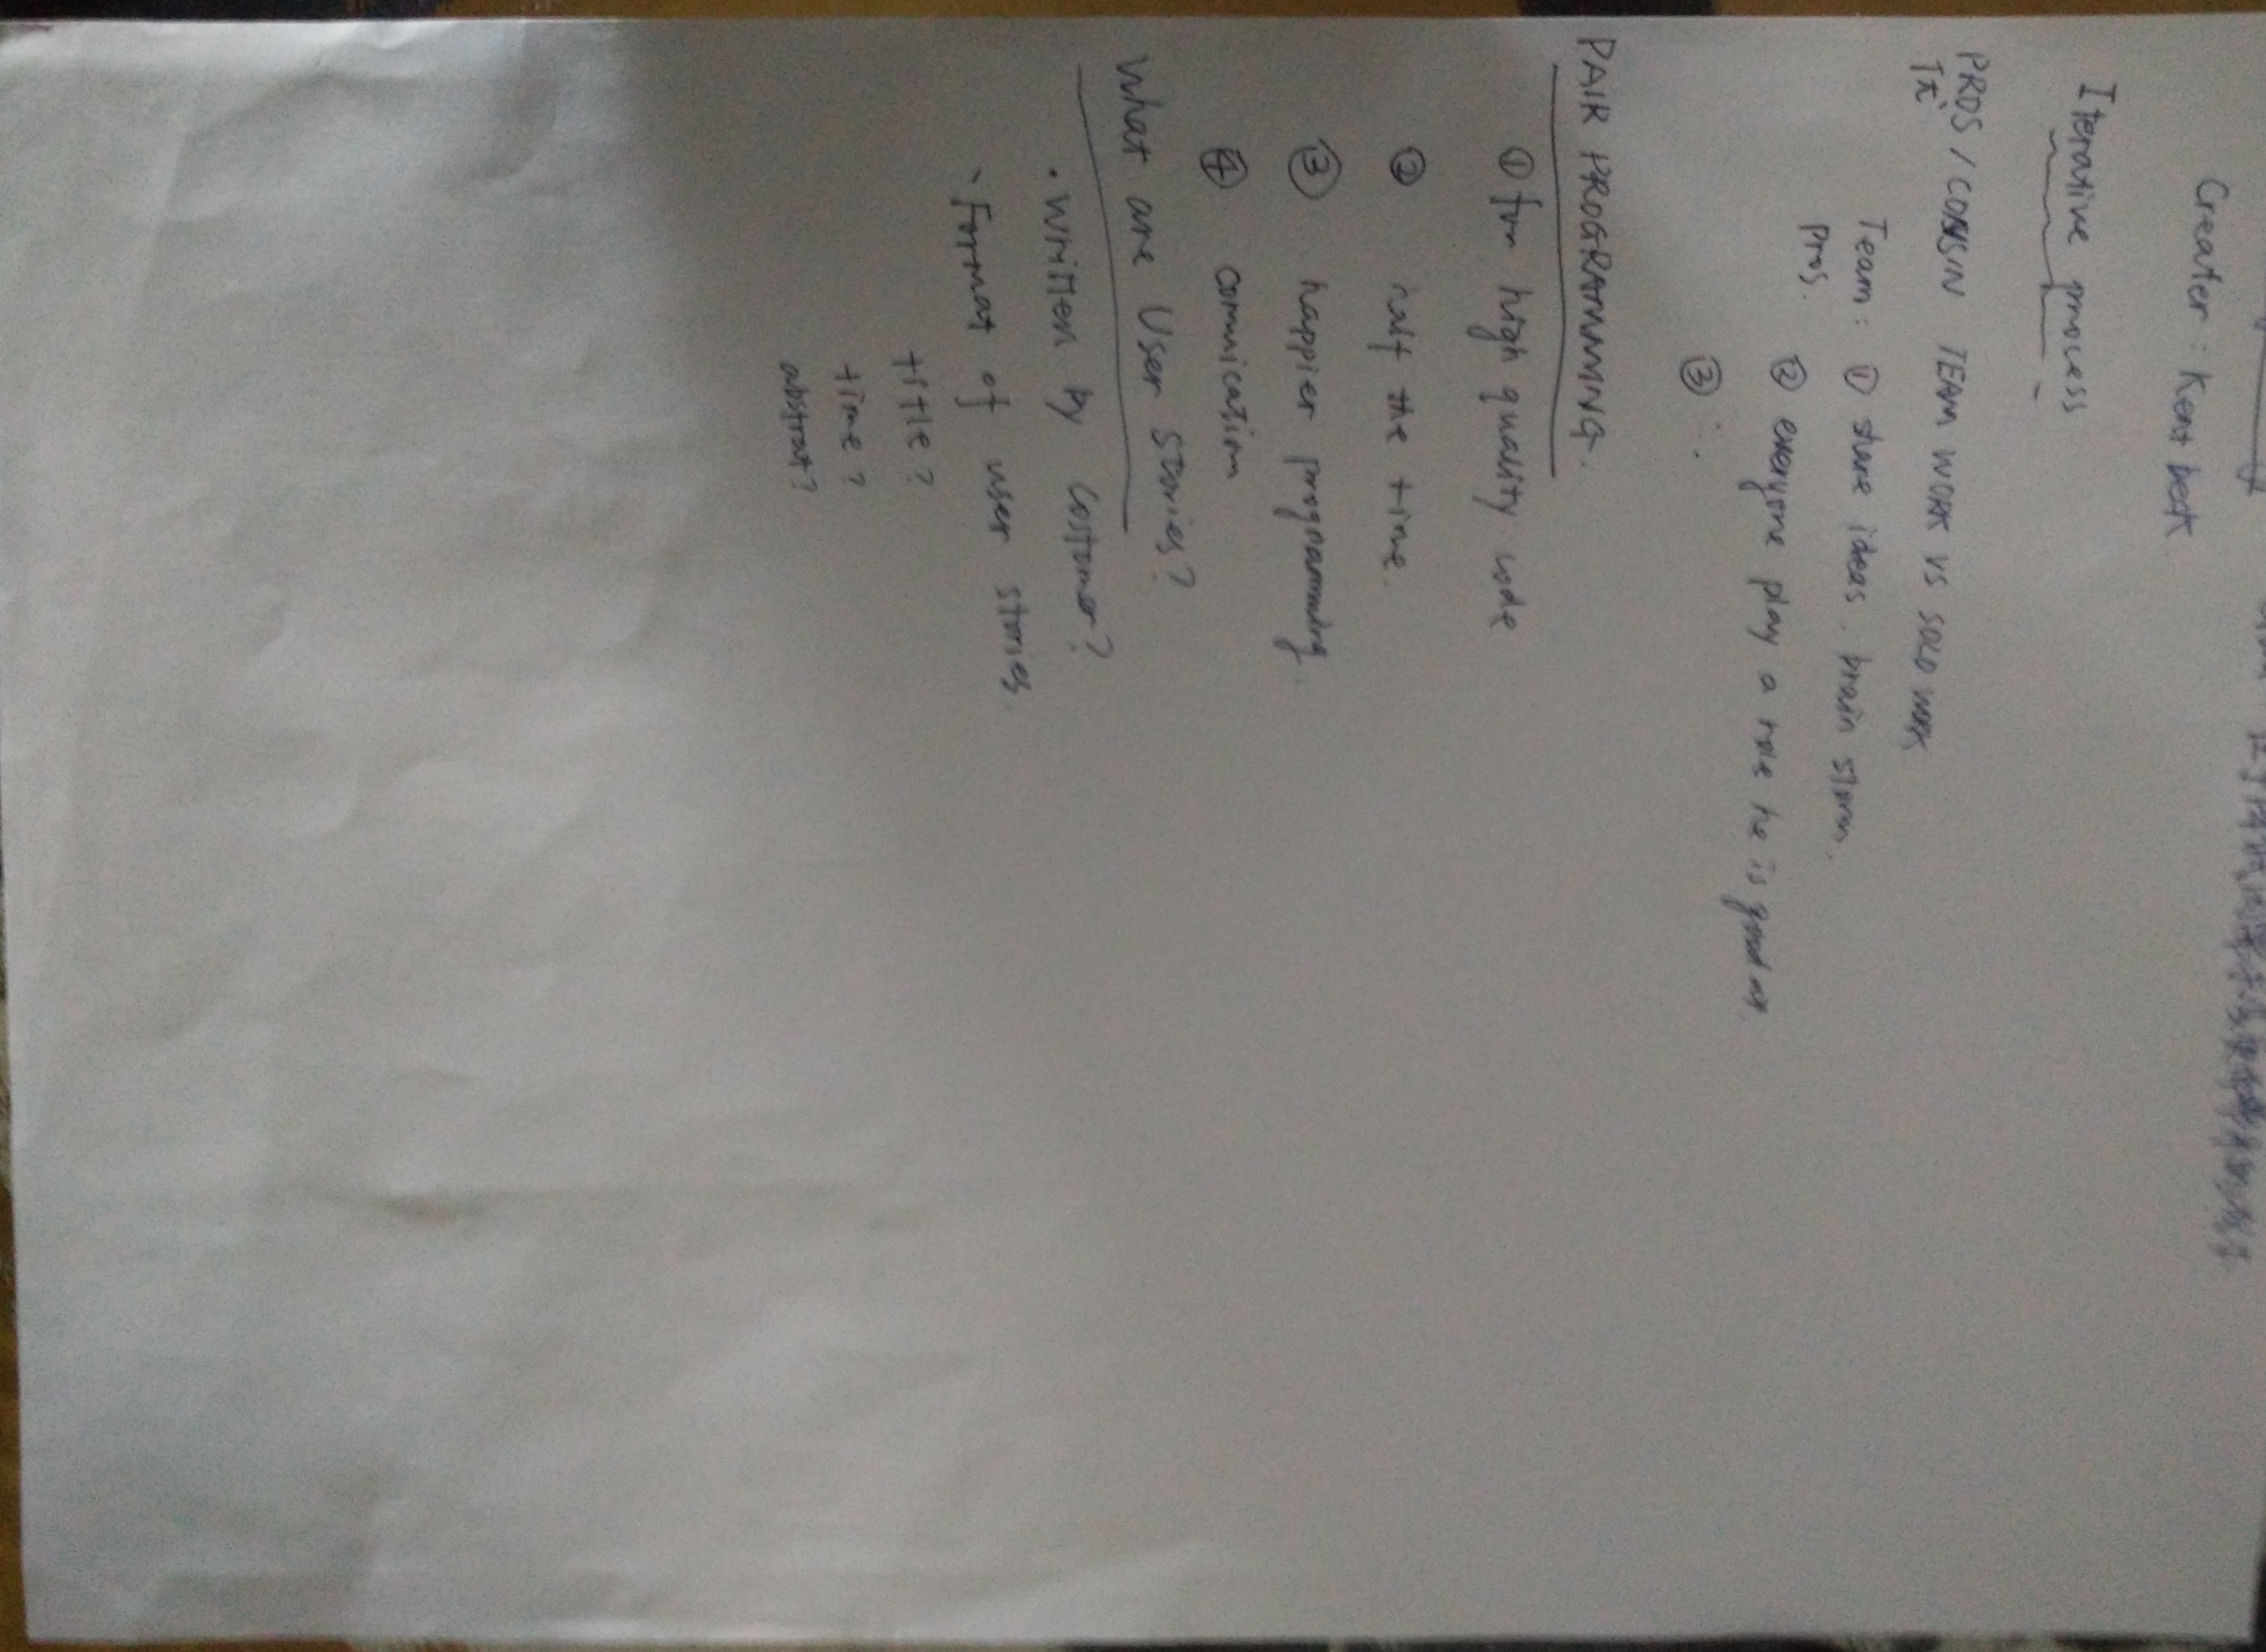 Creater : Kent beck
Iterative process
PROS / CONS IN TEAM WORK VS SOLO WORK
Team : ① share ideas, brain storm.
pros. ② everyone play a role he is good at.
③ ∴
PAIR PROGRAMMING.
① for high quality code
② half the time.
③ happier programming.
④ comnication
What are User stories?
• written by costomer?
Format of user stories
title?
time?
abstrat?